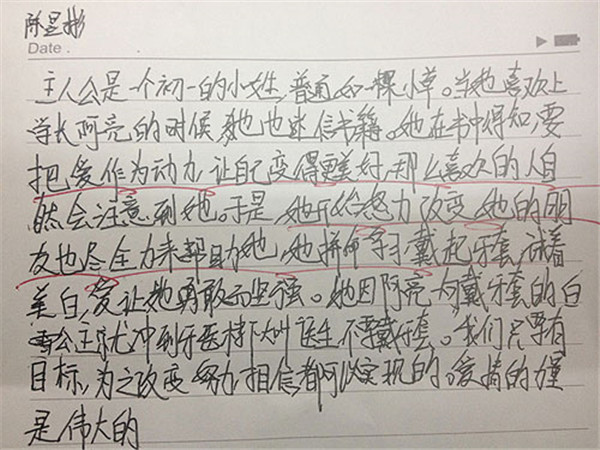 陈昱彬
Date .
主人公是一个初一的小姓,普通如一棵小草。当她喜欢上
学长阿亮的时候,她也迷信书籍。她在书中得知,要
把爱作为动力,让自己变得更美好,那么喜欢的人自
然会注意到她。于是,她开始努力改变,她的朋
友也尽全力来帮助她,她拼命学习,戴起牙套,试着
美白,爱让她勇敢而坚强。她因阿亮为戴牙套的白
雪公主就冲到牙医楼下大叫医生不要戴牙套。我们只要有
目标,为之改变,努力,相信都可以实现的。爱情的力量
是伟大的